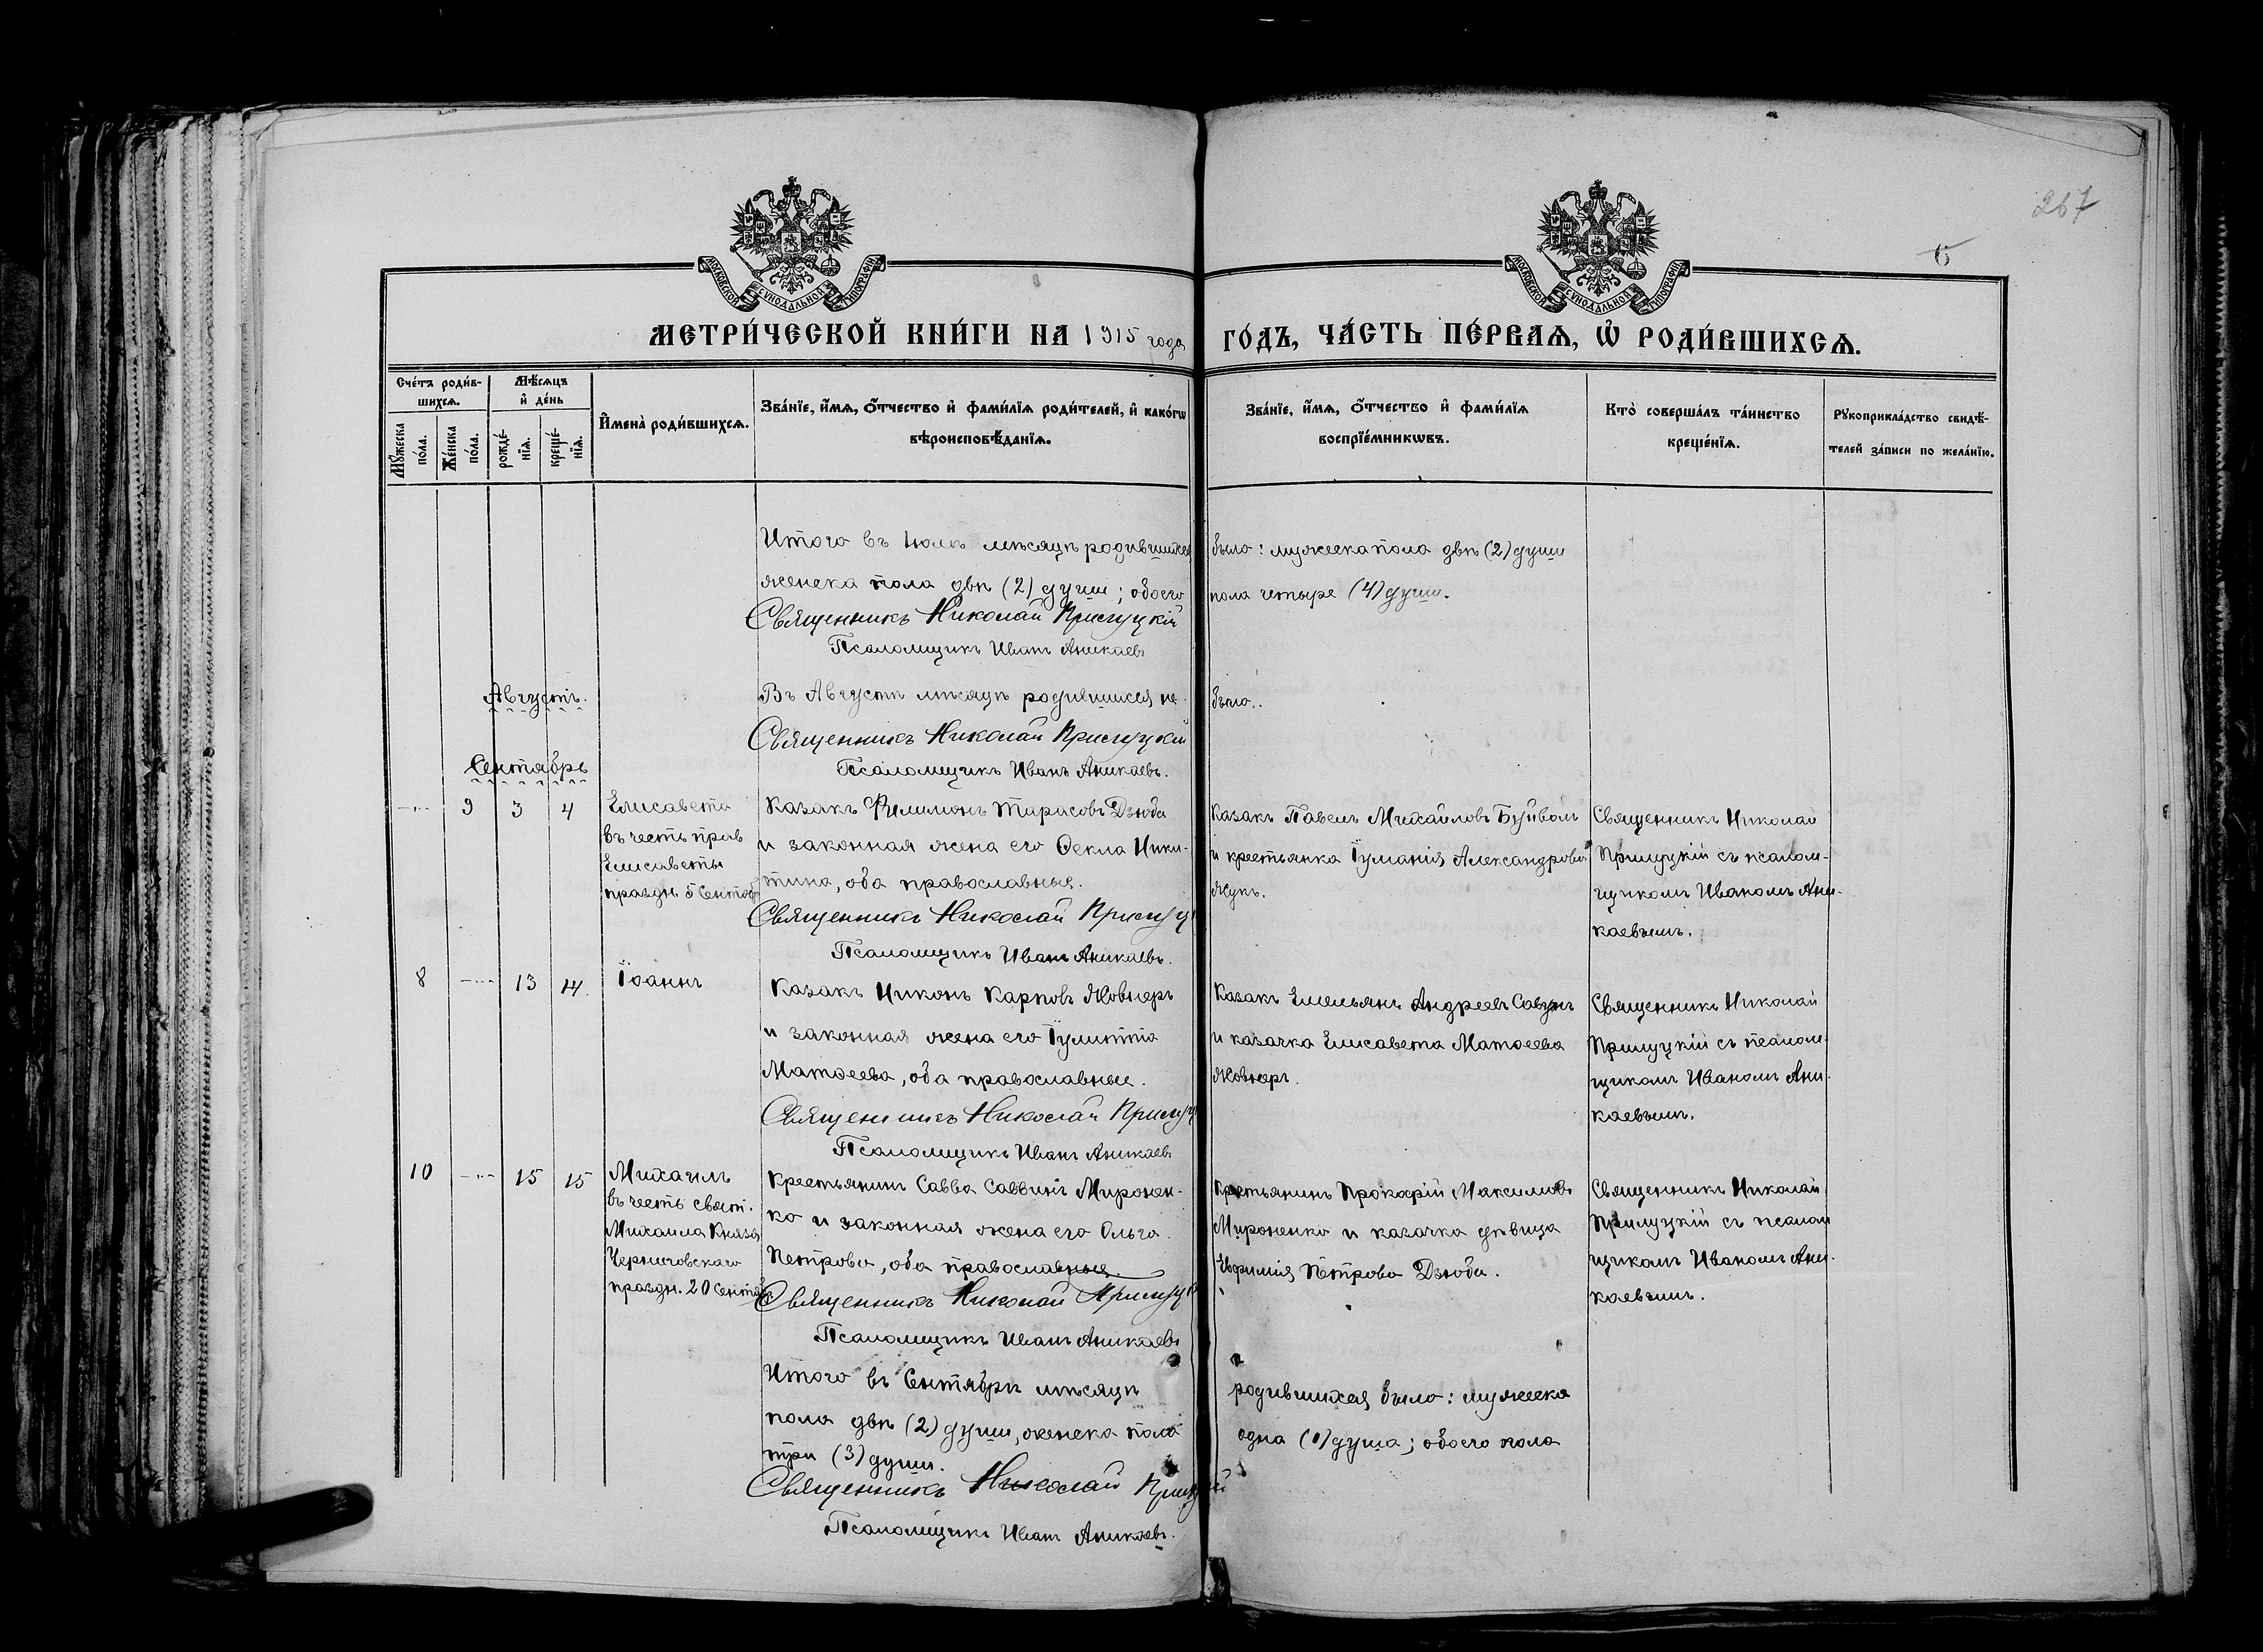 267
6
МОСКОВСКОЙ СѴНОДАЛЬНОЙ ТИПОГРАФІИ
МОСКОВСКОЙ СѴНОДАЛЬНОЙ ТИПОГРАФІИ
МЕТРИ́ЧЕСКОЙ КНИ́ГИ НА 1915 года ГО́ДЪ, ЧА́СТЬ ПЕ́РВАѦ, Ѡ҆ РОДИ́ВШИХСѦ.
Сче́тъ роди́в-
шихсѧ.
Мѣ́сѧцъ
и҆ де́нь
Мꙋ́жеска
по́ла.
Же́нска
по́ла.
рожде́-
нїѧ.
креще́-
нїѧ.
И҆мена̀ роди́вшихсѧ.
Зва́нїе, и҆́мѧ, о҆́тчество и҆ фами́лїѧ роди́телей, и҆ како́гѡ
вѣроисповѣ́данїѧ.
Зва́нїе, и҆́мѧ, о҆́тчество и҆ фами́лїѧ
воспрїе́мникѡвъ.
Кто̀ соверша́лъ та́инство
креще́нїѧ.
Рꙋкоприкла́дство свидѣ́-
телей за́писи по жела́нїю.
Итого въ Іюлѣ мѣсяцѣ родившихся было: мужеска пола двѣ (2) души
женска пола двѣ (2) души; обоего пола четыре (4) души.
Священникъ Николай Прилуцкій
Псаломщикъ Иванъ Аникаевъ
Августъ.
Въ Августѣ мѣсяцѣ родившихся не было.
Священникъ Николай Прилуцкій
Сентябрь
Псаломщикъ Иванъ Аникаевъ.
9 3 4
Елисавета
въ честь прав
Елисаветы
праздн. 5 Сентяб
Казакъ Филимонъ Тарасовъ Дзюба
и законная жена его Ѳекла Ники-
тина, оба православные.
Священникъ Николай Прилуц
Псаломщикъ Иванъ Аникаевъ.
Казакъ Павелъ Михайловъ Буйвол
и крестьянка Іуланія Александрова
Жукъ.
Священникъ Николай
Прилуцкій съ псалом-
щикомъ Иваномъ Ани-
каевымъ.
8 13 14.
Іоаннъ
Казакъ Никонъ Карповъ Жовнеръ
и законная жена его Іулитта
Матѳеева, оба православные.
Священникъ Николай Прилуц
Псаломщикъ Иванъ Аникаевъ
Казакъ Емельянъ Андреевъ Савунъ
и казачка Елисавета Матѳеева
Жовнеръ.
Священникъ Николай
Прилуцкій съ псалом-
щикомъ Иваномъ Ани-
каевымъ.
10 15 15
Михаилъ
въ честь свят.
Михаила Князя
Черниговскаго
праздн. 20 Сентяб
Крестьянинъ Савва Саввинъ Миронен-
ко и законная жена его Ольга
Петрова, оба православные.
Священникъ Николай Прилуцк
Псаломщикъ Иванъ Аникаевъ
Крестьянинъ Прокофій Максимовъ
Мироненко и казачка дѣвица
Евфимія Петрова Дзюба.
Священникъ Николай
Прилуцкій съ псалом
щикомъ Иваномъ Ани-
каевымъ.
Итого въ Сентябрѣ мѣсяцѣ родившихся было: мужеска
пола двѣ (2) души, женска пола одна (1) душа; обоего пола
три (3) души.
Священникъ Николай Прилуцкій
Псаломщикъ Иванъ Аникаевъ.